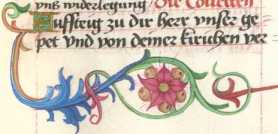 vns widerlegung / Die Collecten
Auffsteig zu dir herr vnser ge-
pet vnd von deiner kirichen ver-